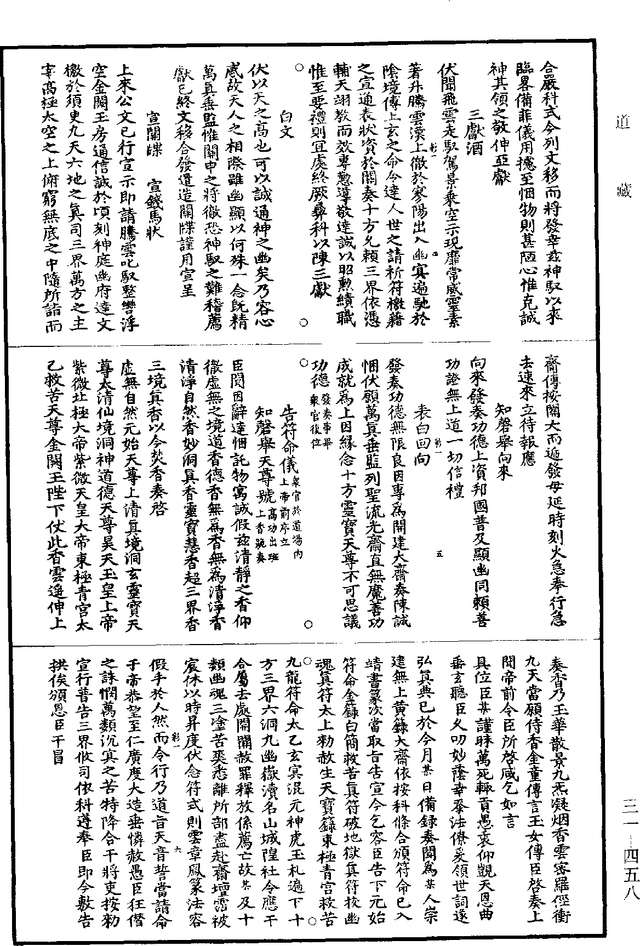 道藏
合嚴科式今列文移而將發幸茲神馭以來
臨畧備菲儀用攄至悃物則甚陋心惟克誠
神其領之敬伸亞獻
三獻酒
伏聞飛雲走馭駕景乘空示現靡常威靈素
著升騰雲漢上徹於寥陽出入幽冥遍馳於
陰境傳上玄之命令達人世之請祈符檄藉
之宣通表狀資於關奏十方允賴三界依憑
輔天翊教而效專懃導敬達誠以昭懃績職
惟至要禮則宜處終厥彝科以陳三獻
白文
伏以天之高也可以誠通神之幽矣乃容心
感故天人之相際雖幽顯以何殊一念既精
萬真垂監惟關申之將徹恐神馭之難稽薦
獻已終文移合發遣造關牒謹用宣呈
宣關牒 宣錢馬狀
上來公文已行宣示即請騰雲叱馭整轡浮
空金闕玉房通信誠於頃刻神庭幽府達文
檄於須臾九天六地之真司三界萬方之主
宰高極太空之上俯窮無底之中隨所詣而
齎傳按關大而遞發毋延時刻火急奉行急
去速來立待報應
知磬舉向來
向來發奏功德上資邦國普及顯幽同賴善
功證無上道一切信禮
表白回向
發奏功德無限良因專為開建大齋奏陳誠
悃伏願萬真垂監列聖流光齋直無魔善功
成就為上因緣念十方靈寶天尊不可思議
功德發奏事畢眾官復位
告符命儀眾官於道場內上帝前序立
知磬舉天尊號高功出班上香跪奏
臣聞因辭達悃託物寓誠假茲清靜之香仰
徹虛無之境道香德香無為香清淨香
清淨自然香妙洞真香靈寶慧香超三界香
三境真香以今焚香奏啓
虛無自然元始天尊上清真境洞玄靈寶天
尊太清仙境洞神道德天尊昊天玉皇上帝
紫微北極大帝紫微天皇大帝東極青宮太
乙救苦天尊金闕玉陛下伏此香雲遙伸上
奏香乃玉華散景九炁凝烟香雲密羅徑衝
九天當願侍香金童傳言玉女傳臣啓奏上
聞帝前令臣所啓咸乞如言
具位臣某謹昧萬死輒貢愚衷仰觀天恩曲
垂玄聽臣夂叨妙蔭幸參法僚爰領世詞遠
弘真典已於今月某日備錄奏聞為某人崇
建無上黃籙大齋依按科條合頒符命已入
靖書篆次當取告宣今乞容臣告下元始
符命金籙白簡救苦真符破地獄真符救幽
魂真符太上勑赦生天寶籙東極青宮救苦
九龍符命太乙玄冥混元神虎玉札遍下十
方三界六洞九幽嶽瀆名山城隍社令應干
合屬去處開關赦罪釋放係薦亡故某及十
類幽魂三塗苦爽悉離所部盡赴齋壇需被
宸休以時昇度伏念符式則雲章鳳篆法容
假手於人然而令行乃道旨天音誓當請命
于帝恭望至仁廣度大造垂憐赦愚臣狂僭
之誅憫萬類沉冥之苦特降合干將吏按勑
宣行普告三界攸司依科遵奉臣即今敷告
拱俟頒恩臣干冒
三一 四五八